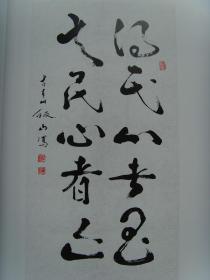 得民心者昌
失民心者亡